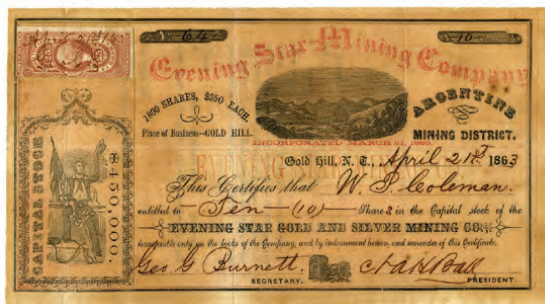 64
10
Evening Star Mining Company
1800 SHARES, $250 EACH.
Place of Business—GOLD HILL.
ARGENTINE
MINING DISTRICT.
INCORPORATED MARCH 21, 1863.
CAPITAL STOCK
$450,000.
Gold Hill, N. T., April 21st 1863
This Certifies that W. P. Coleman.
entitled to Ten (10) Shares in the Capital stock of the
EVENING STAR GOLD AND SILVER MINING CO.
transferable only on the books of the Company, and by indorsement hereon and surrender of this Certificate.
Geo. G. Burnett.
SECRETARY.
PRESIDENT.